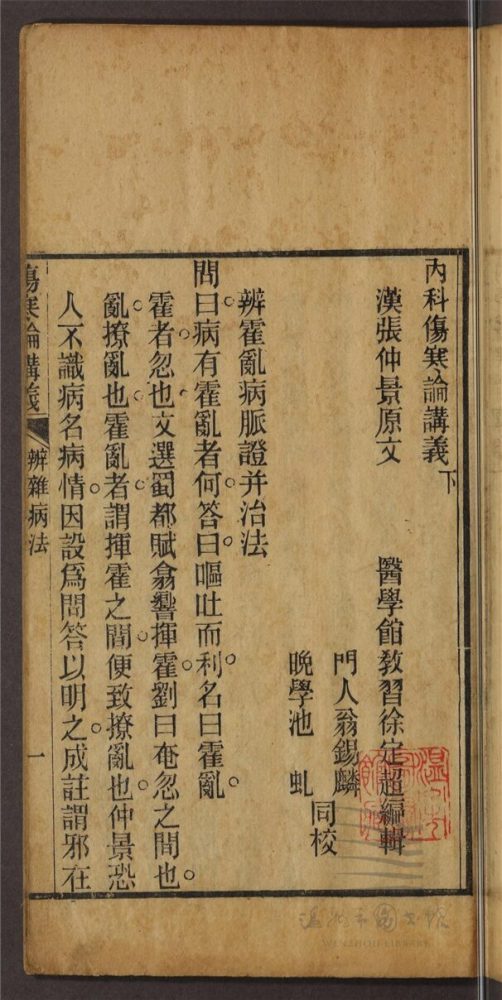 內科傷寒論講義 下
漢張仲景原文 醫學館教習徐定超編輯
門人翁錫麟
同校
晚學池 虬
辨霍亂病脈證并治法
問曰。病有霍亂者何。答曰。嘔吐而利。名曰霍亂。
霍者。忽也。文選蜀都賦翕響揮霍。劉曰奄忽之間也。
亂。撩亂也。霍亂者。謂揮霍之間。便致撩亂也。仲景恐
人不識病名病情。因設爲問答以明之。成註謂邪在
傷寒論講義 辨雜病法 一
溫州市圖書館
WENZHOU LIBRARY